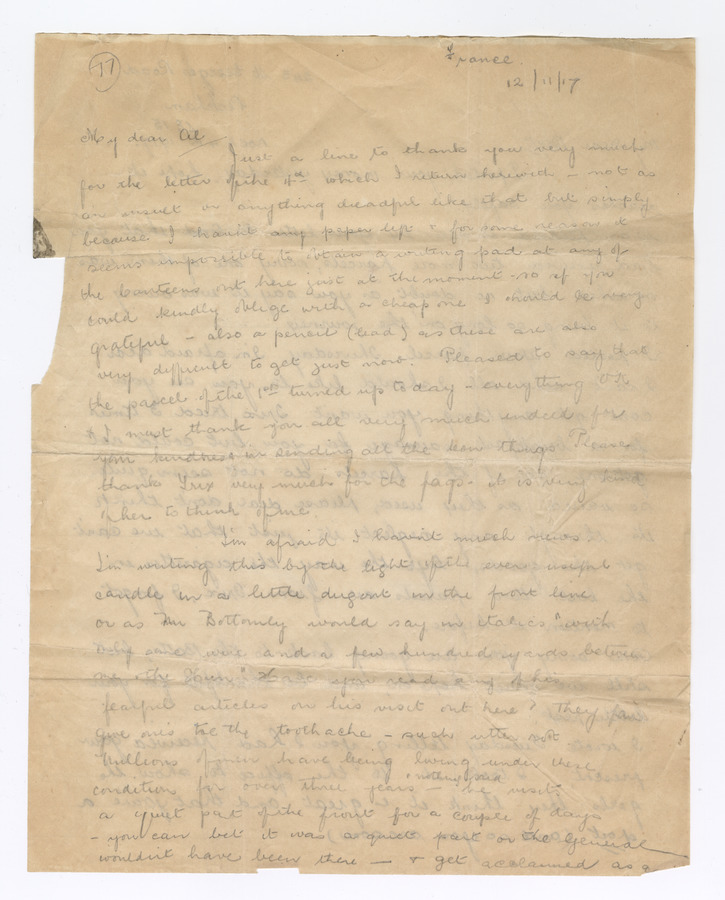 17
France.
12/11/17
My dear Al
Just a line to thank you very much
for the letter of the 4th which I return herewith - not as
an insult or anything dreadful like that but simply
because I havn't any paper left & for some reason it
seems impossible to obtain a writing pad at any of
the Canteens out here just at the moment - so if you
could kindly oblige with a cheap one I should be very
grateful - also a pencil (lead) as these are also
very difficult to get just now. Pleased to say that
the parcel of the 1st turned up today - everything OK
& I must thank you all very much indeed for
your kindness in sending all the things Please
thank Trix very much for the fags - it is very kind
of her to think of me.
I'm afraid I haven't much news.
I'm writing this by the light of the ever useful
candle in a little dugout in the front line
or as Mr Bottomly would say in italics "with
only some wire and a few hundred yards between
me & the Huns" Have you read any of his
fearful articles on his visit out here? They fair
give one's the toothache - such utter rot
Millions of men have being living under these
condition for over three years - nothing said he visits
a quiet part of the front for a couple of days
- you can bet it was a quiet part or the General
wouldn't have been there - & get acclaimed as a